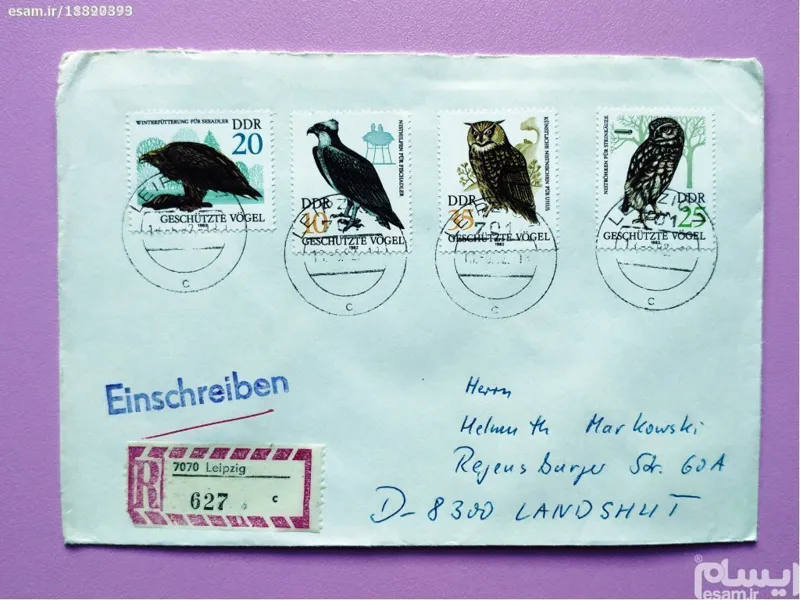 esam.ir/18820393
WINTERFÜTTERUNG FÜR SEEADLER
DDR
20
GESCHÜTZTE VÖGEL
1982
NISTHILFEN FÜR FISCHADLER
DDR
10
GESCHÜTZTE VÖGEL
1982
KÜNSTLICHE NISTNISCHEN FÜR UHUS
DDR
35
GESCHÜTZTE VÖGEL
1982
NISTRÖHREN FÜR STEINKÄUZE
DDR
25
GESCHÜTZTE VÖGEL
1982
701
c
c
c
c
Einschreiben
R
7070 Leipzig
627
c
Herrn
Helmuth Markowski
Regensburger Str. 60A
D-8300 LANDSHUT
ایسام
esam.ir